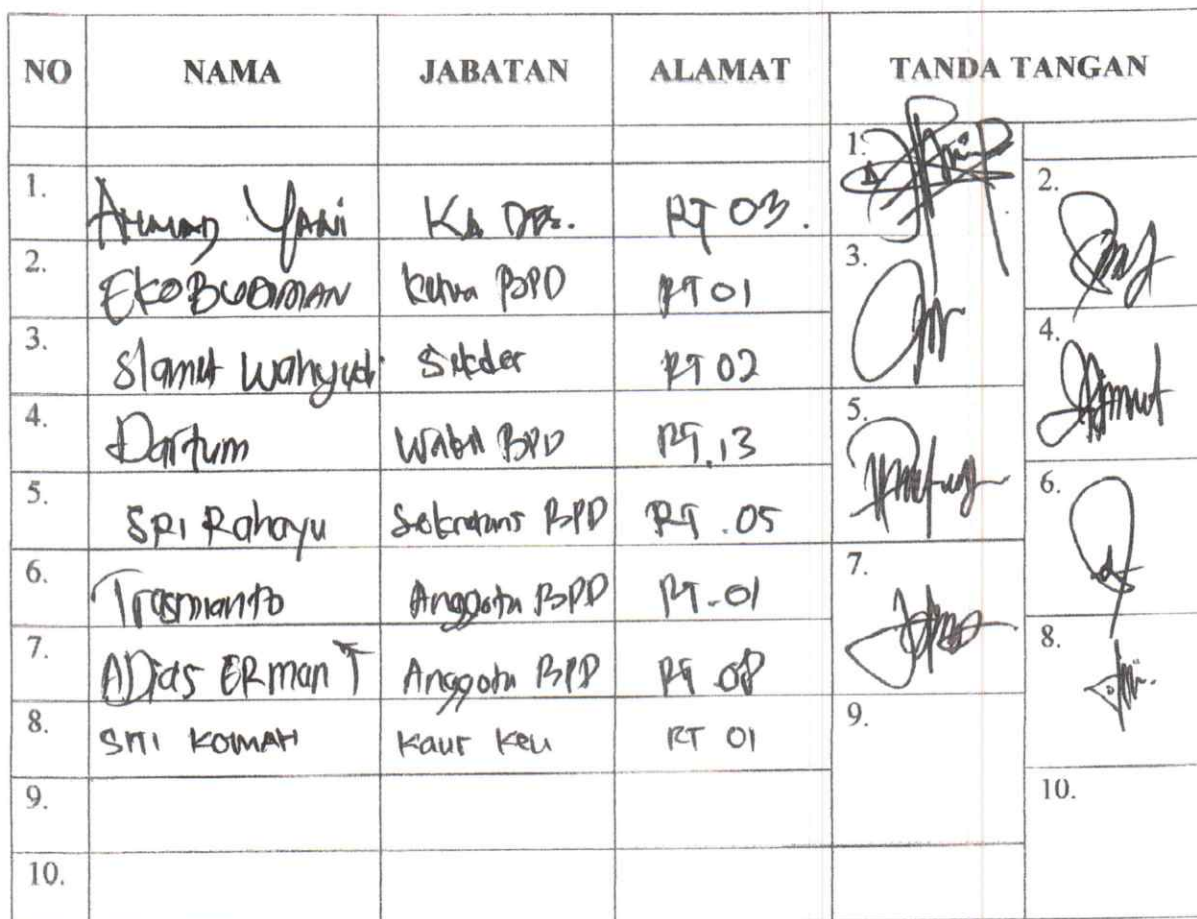 NO NAMA JABATAN ALAMAT TANDA TANGAN
1. AHMAD YANI KA DES. RT 03. 1.
2.
2. EKO BUDIMAN Ketua BPD RT 01 3.
3. Slamet Wahyudi Sekdes RT 02 4.
4. Dartum Wakil BPD RT.13 5.
5. SRI Rahayu Sekretaris BPD RT.05 6.
6. Trasmianto Anggota BPD RT.01 7.
7. ADIAS ERMAN T Anggota BPD RT 08 8.
8. SITI KOMAH Kaur Keu RT 01 9.
9. 10.
10.